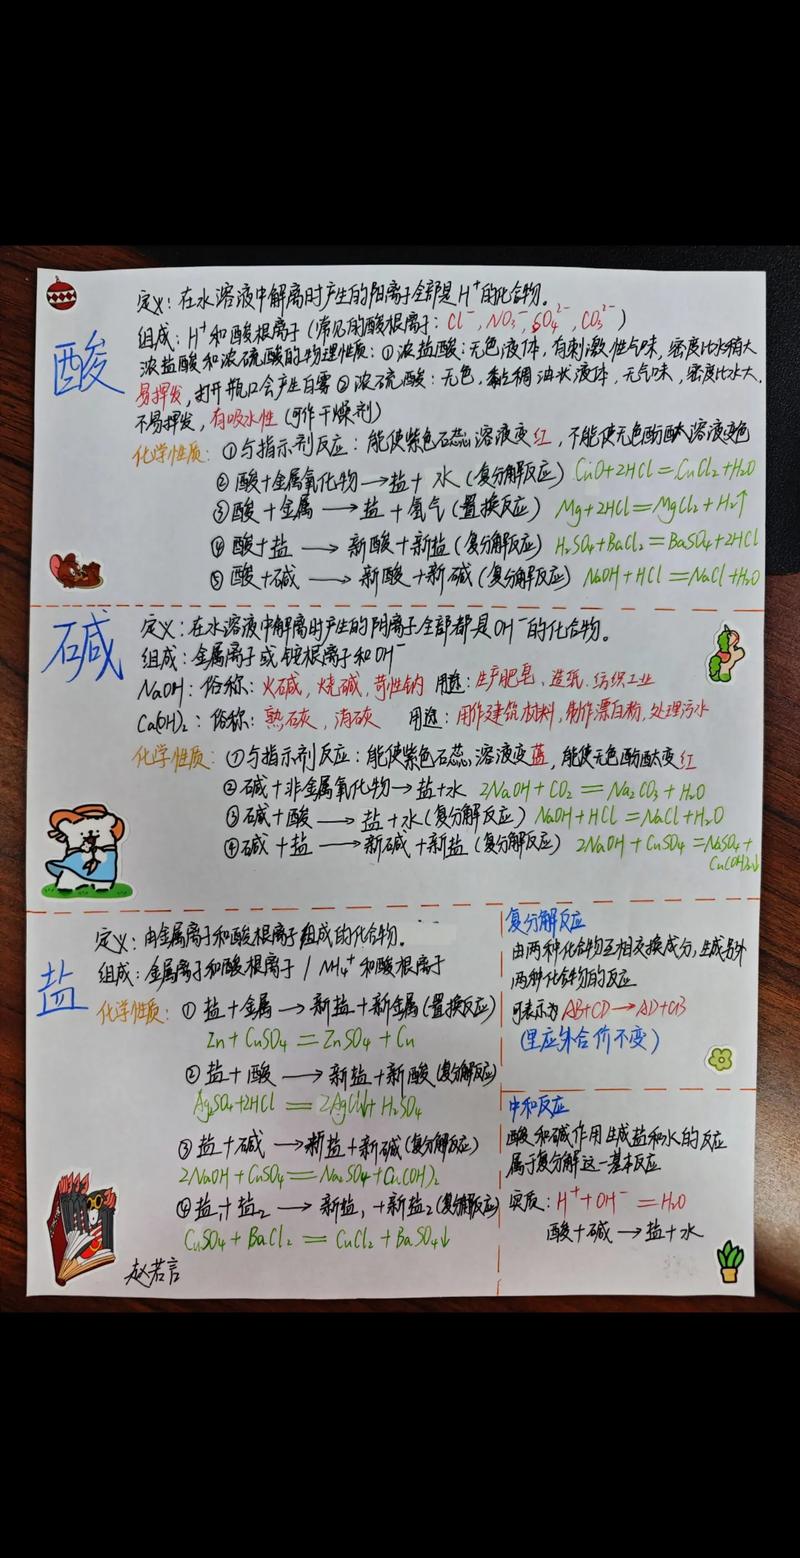 酸
定义：在水溶液中解离时产生的阳离子全部是H⁺的化合物。
组成：H⁺和酸根离子（常见的酸根离子：Cl⁻，NO₃⁻，SO₄²⁻，CO₃²⁻）
浓盐酸和浓硫酸的物理性质：①浓盐酸：无色液体，有刺激性气味，密度比水稍大
易挥发，打开瓶口会产生白雾②浓硫酸：无色，黏稠油状液体，无气味，密度比水大，
不易挥发，有吸水性（可作干燥剂）
化学性质：①与指示剂反应：能使紫色石蕊溶液变红，不能使无色酚酞溶液变色
②酸+金属氧化物→盐+水（复分解反应）CuO+2HCl=CuCl₂+H₂O
③酸+金属→盐+氢气（置换反应）Mg+2HCl=MgCl₂+H₂↑
④酸+盐→新酸+新盐（复分解反应）H₂SO₄+BaCl₂=BaSO₄+2HCl
⑤酸+碱→新酸+新碱（复分解反应）NaOH+HCl=NaCl+H₂O
碱
定义：在水溶液中解离时产生的阴离子全部都是OH⁻的化合物。
组成：金属离子或铵根离子和OH⁻
NaOH：俗称：火碱，烧碱，苛性钠 用途：生产肥皂、造纸、纺织工业
Ca(OH)₂：俗称：熟石灰，消石灰 用途：用作建筑材料，制作漂白粉，处理污水
化学性质：①与指示剂反应：能使紫色石蕊溶液变蓝，能使无色酚酞变红
②碱+非金属氧化物→盐+水 2NaOH+CO₂=Na₂CO₃+H₂O
③碱+酸→盐+水（复分解反应）NaOH+HCl=NaCl+H₂O
④碱+盐→新碱+新盐（复分解反应）2NaOH+CuSO₄=NaSO₄+
Cu(OH)₂↓
盐
定义：由金属离子和酸根离子组成的化合物。
组成：金属离子和酸根离子/NH₄⁺和酸根离子
化学性质：①盐+金属→新盐+新金属（置换反应）
Zn+CuSO₄=ZnSO₄+Cu
②盐+酸→新盐+新酸（复分解反应）
Ag₂SO₄+2HCl=2AgCl↓+H₂SO₄
③盐+碱→新盐+新碱（复分解反应）
2NaOH+CuSO₄=Na₂SO₄+Cu(OH)₂
④盐₁+盐₂→新盐₁+新盐₂（复分解反应）
CuSO₄+BaCl₂=CuCl₂+BaSO₄↓
赵若言
复分解反应
由两种化合物互相交换成分，生成另外
两种化合物的反应
可表示为AB+CD→AD+CB
（里应外合价不变）
中和反应
酸和碱作用生成盐和水的反应
属于复分解这一基本反应
实质：H⁺+OH⁻=H₂O
酸+碱→盐+水